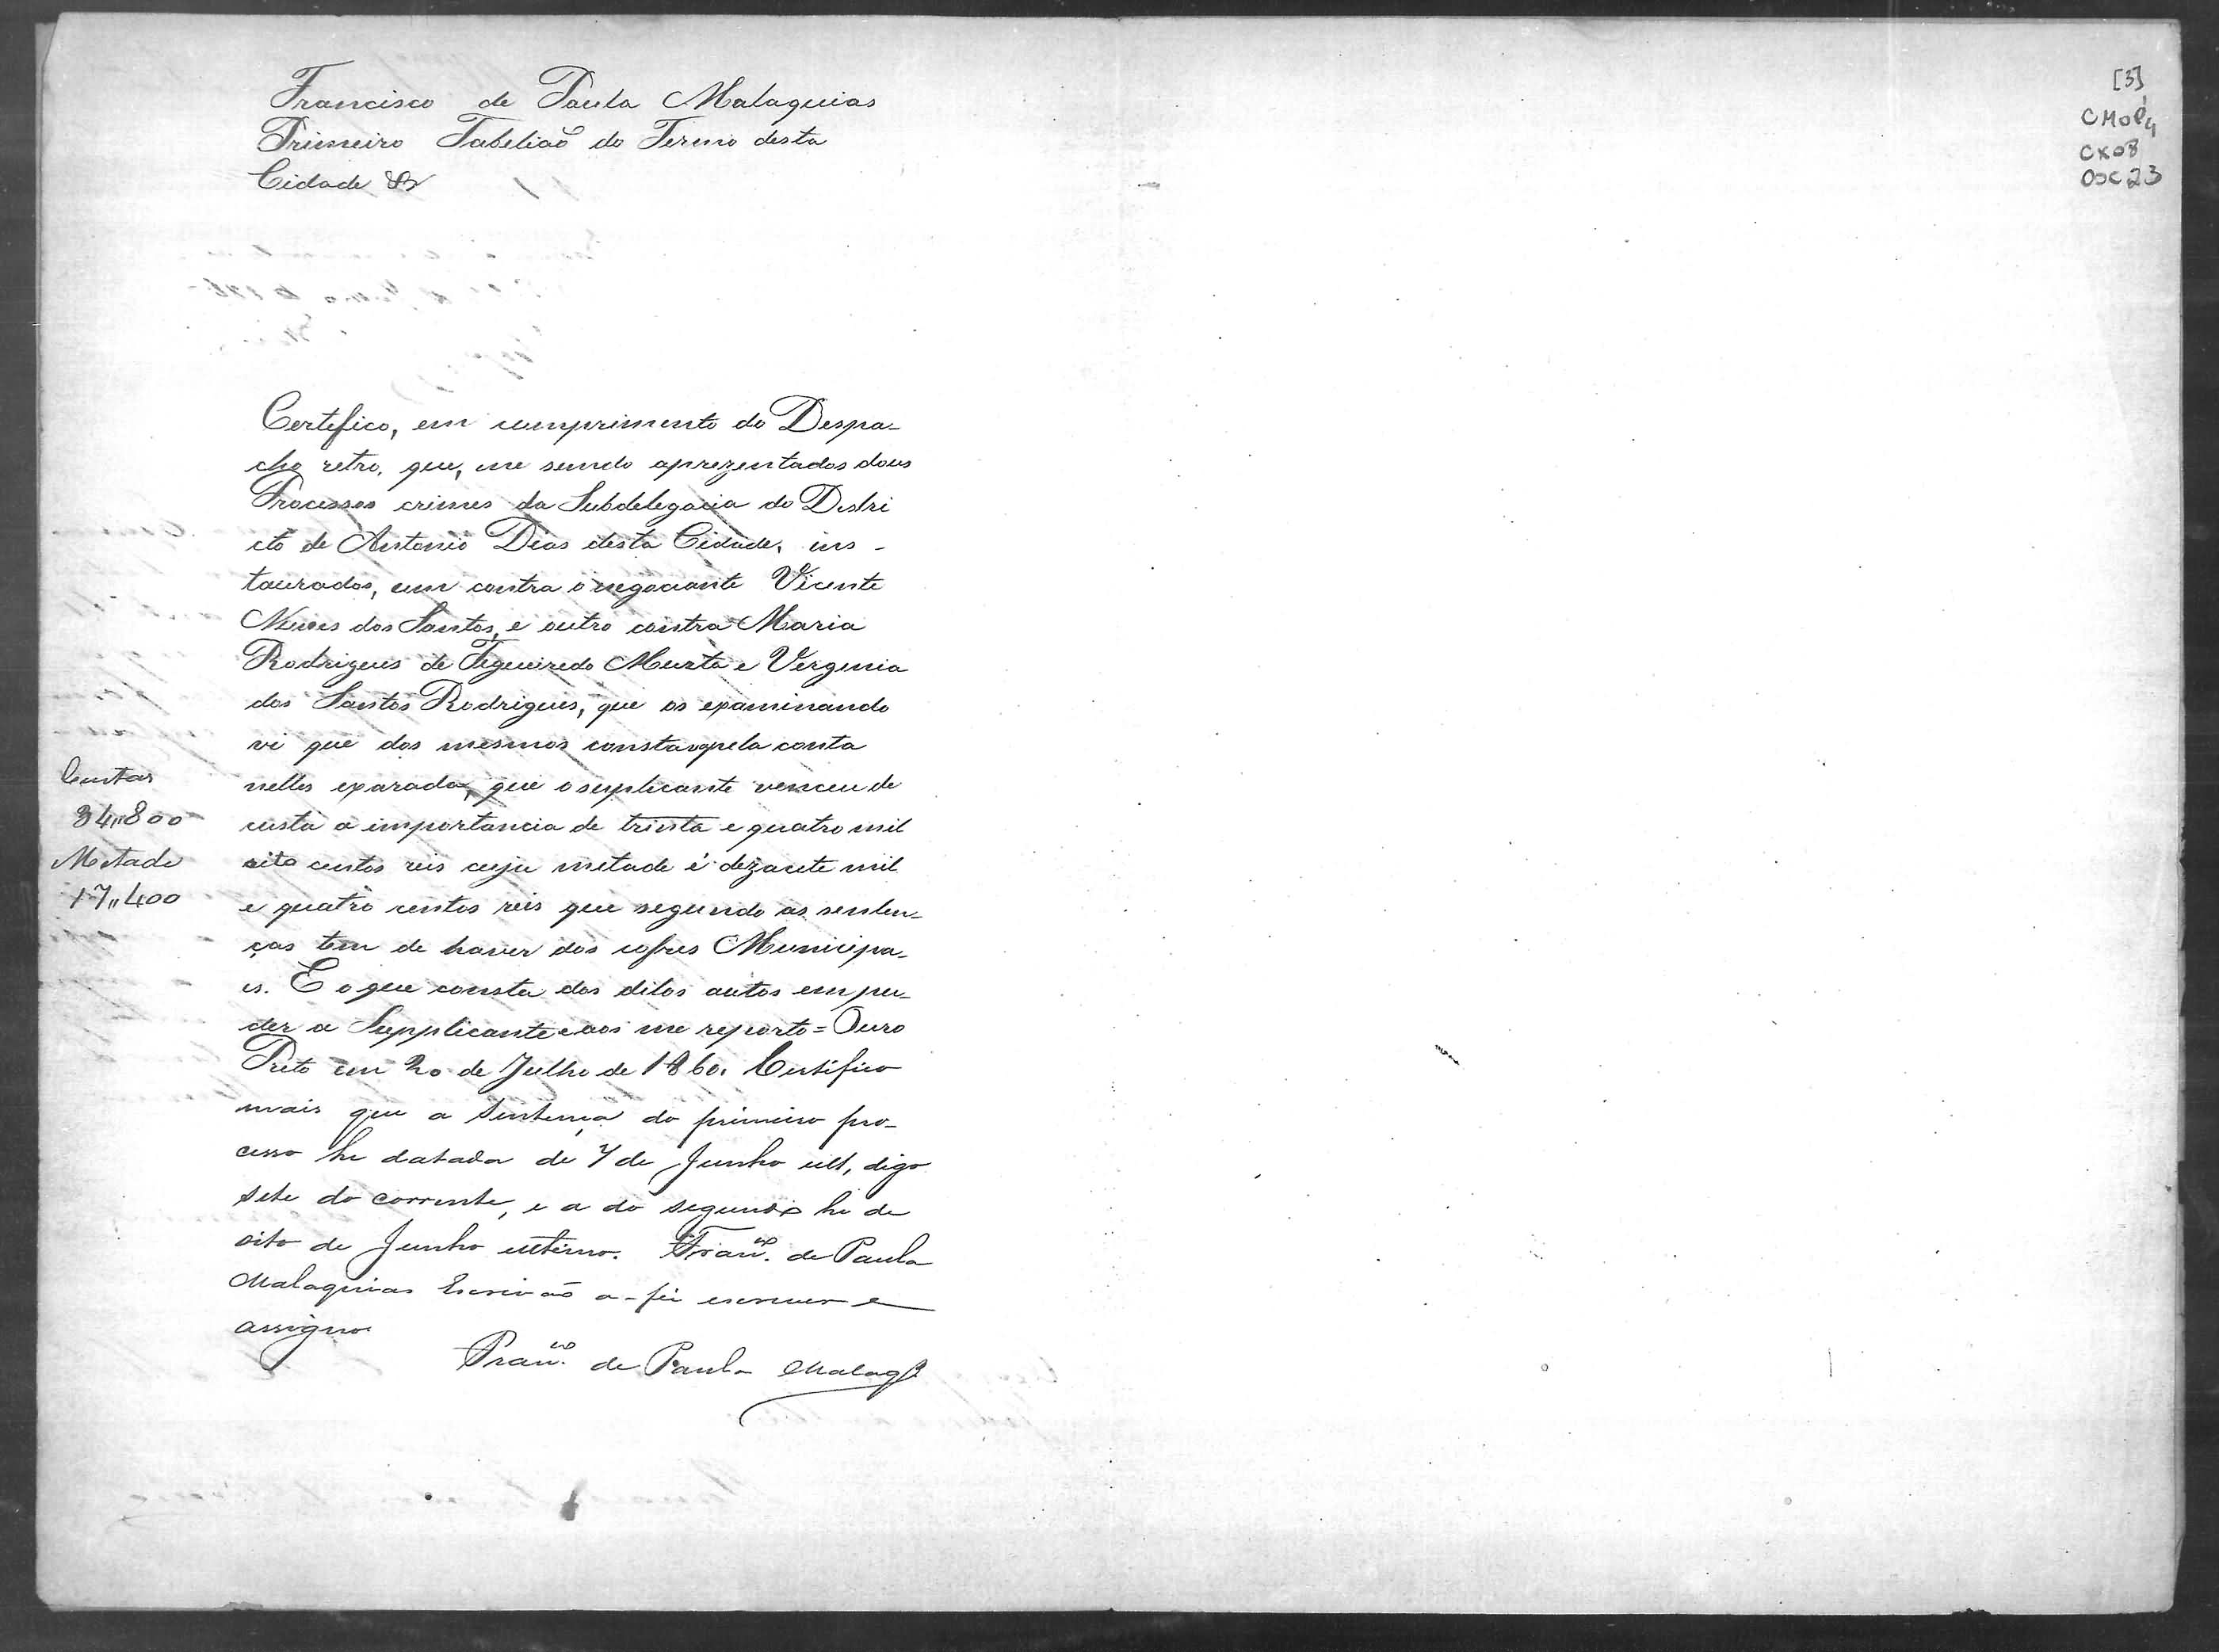 Francisco de Paula Malaquias
Primeiro Tabelião do Termo desta
Cidade &
Certefico, em cumprimento do Despa-
cho retro, que, me sendo aprezentados dous
Processos crimes da Subdelegacia do Destri
cto de Antonio Dias desta Cidade, ins-
taurados, um contra o negociante Vicente
Neves dos Santos, e outro contra Maria
Rodrigues de Figueiredo Murta e Vergenia
dos Santos Rodrigues, que os examinando
vi que dos mesmos consta pela conta
nelles exarada, que o suplicante venceu de
custa a importancia de trinta e quatro mil
oito centos reis cuja metade é dezacete mil
e quatro centos reis que segundo as senten-
ças tem de haver dos cofres Municipa-
es. E o que consta dos ditos autos em pu-
der a Supplicante e aos me reporto = Ouro
Preto em 20 de Julho de 1860. Certifico
mais que a Sentença do primeiro pro-
cesso he datada de 7 de Junho ult, digo
sete do corrente, e a do segundo he de
oito de Junho ultimo. Fran.co de Paula
Malaquias Escrivaõ a-fei escrever e
assigno
Fran.co de Paula Malaq.
Custas
34"800
Metade
17"400
[3]
CMOP4
CX08
DOC 23